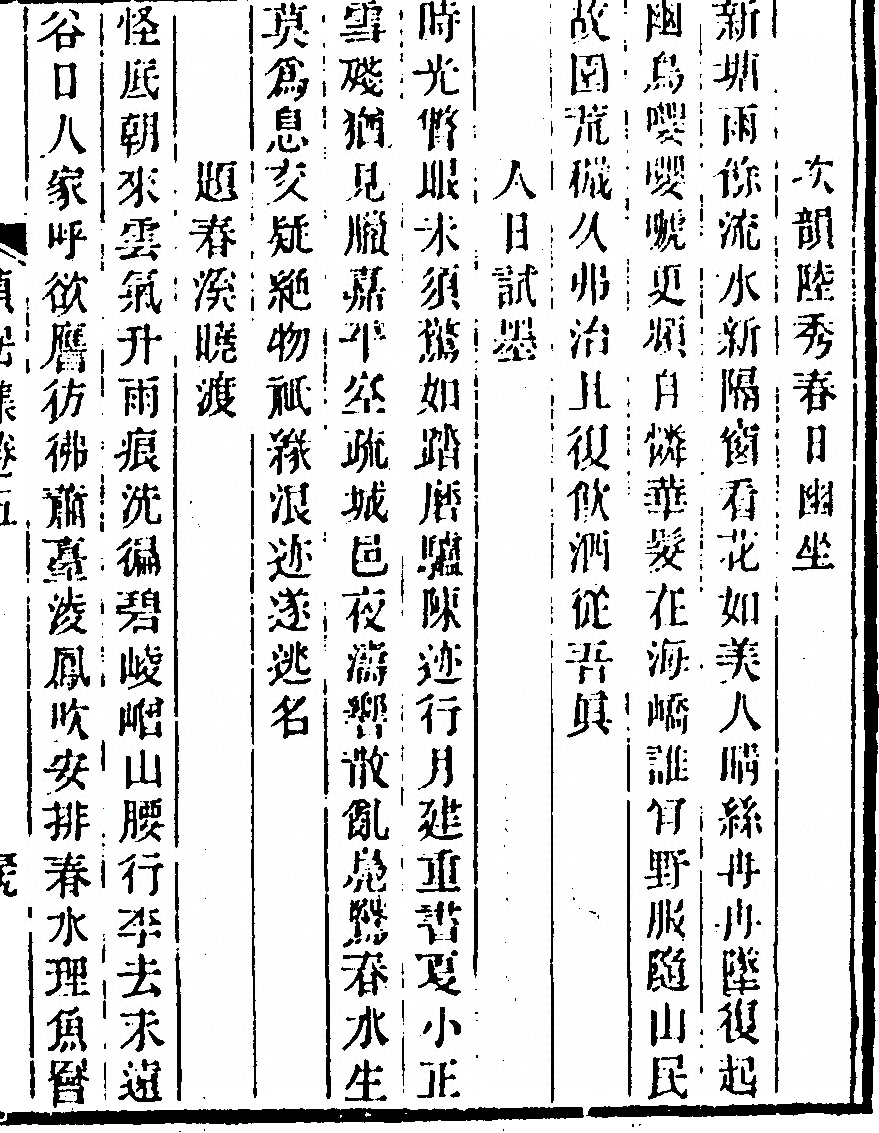 次韻陸秀春日幽坐
新塘雨餘流水新隔窗看花如美人晴絲冉冉墜復起
幽鳥嚶嚶號更頻自憐華髮在海嶠誰肯野服隨山民
故園荒穢久弗治且復飲酒從吾眞
人日試墨
時光瞥眼未須驚如踏磨驢陳迹行月建重書夏小正
雪殘猶見臘嘉平空疏城邑夜濤響散亂鳧鷖春水生
莫爲息交疑絶物祇緣混迹遂逃名
題春溪曉渡
怪底朝來雲氣升雨痕洗徧碧崚嶒山腰行李去未遠
谷口人家呼欲譍彷彿蕭臺淩鳳吹安排春水理魚罾
集卷五